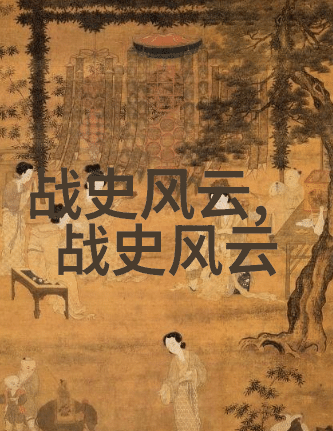 战史风云，
战史风云